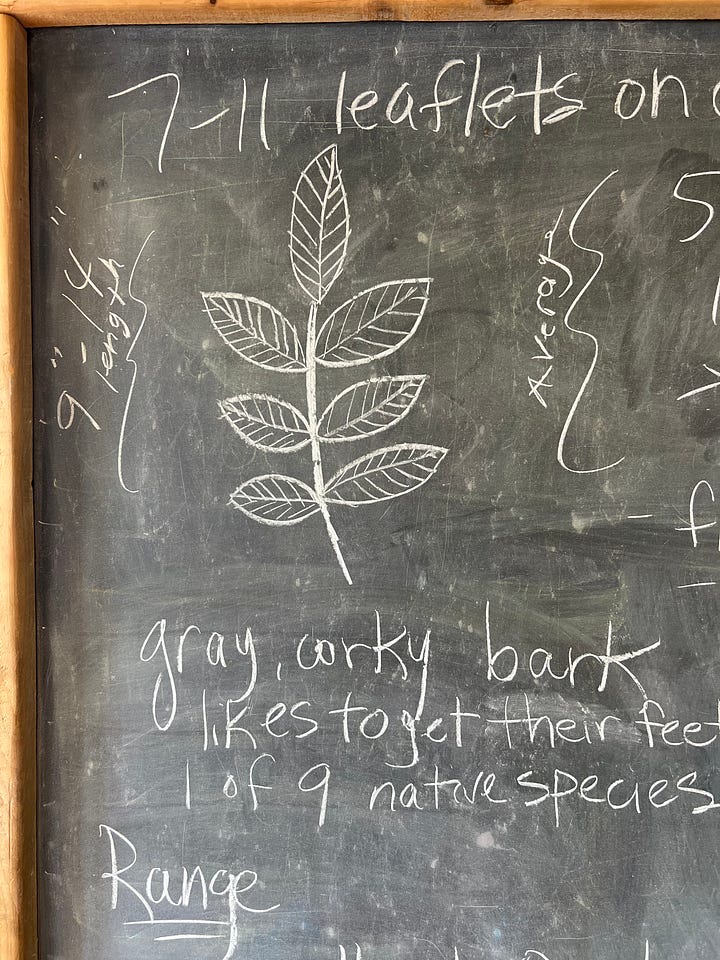 7-11 leaflets on
9"-14"
length
Average
5
gray, corky bark
likes to get their feet
1 of 9 native species
Range